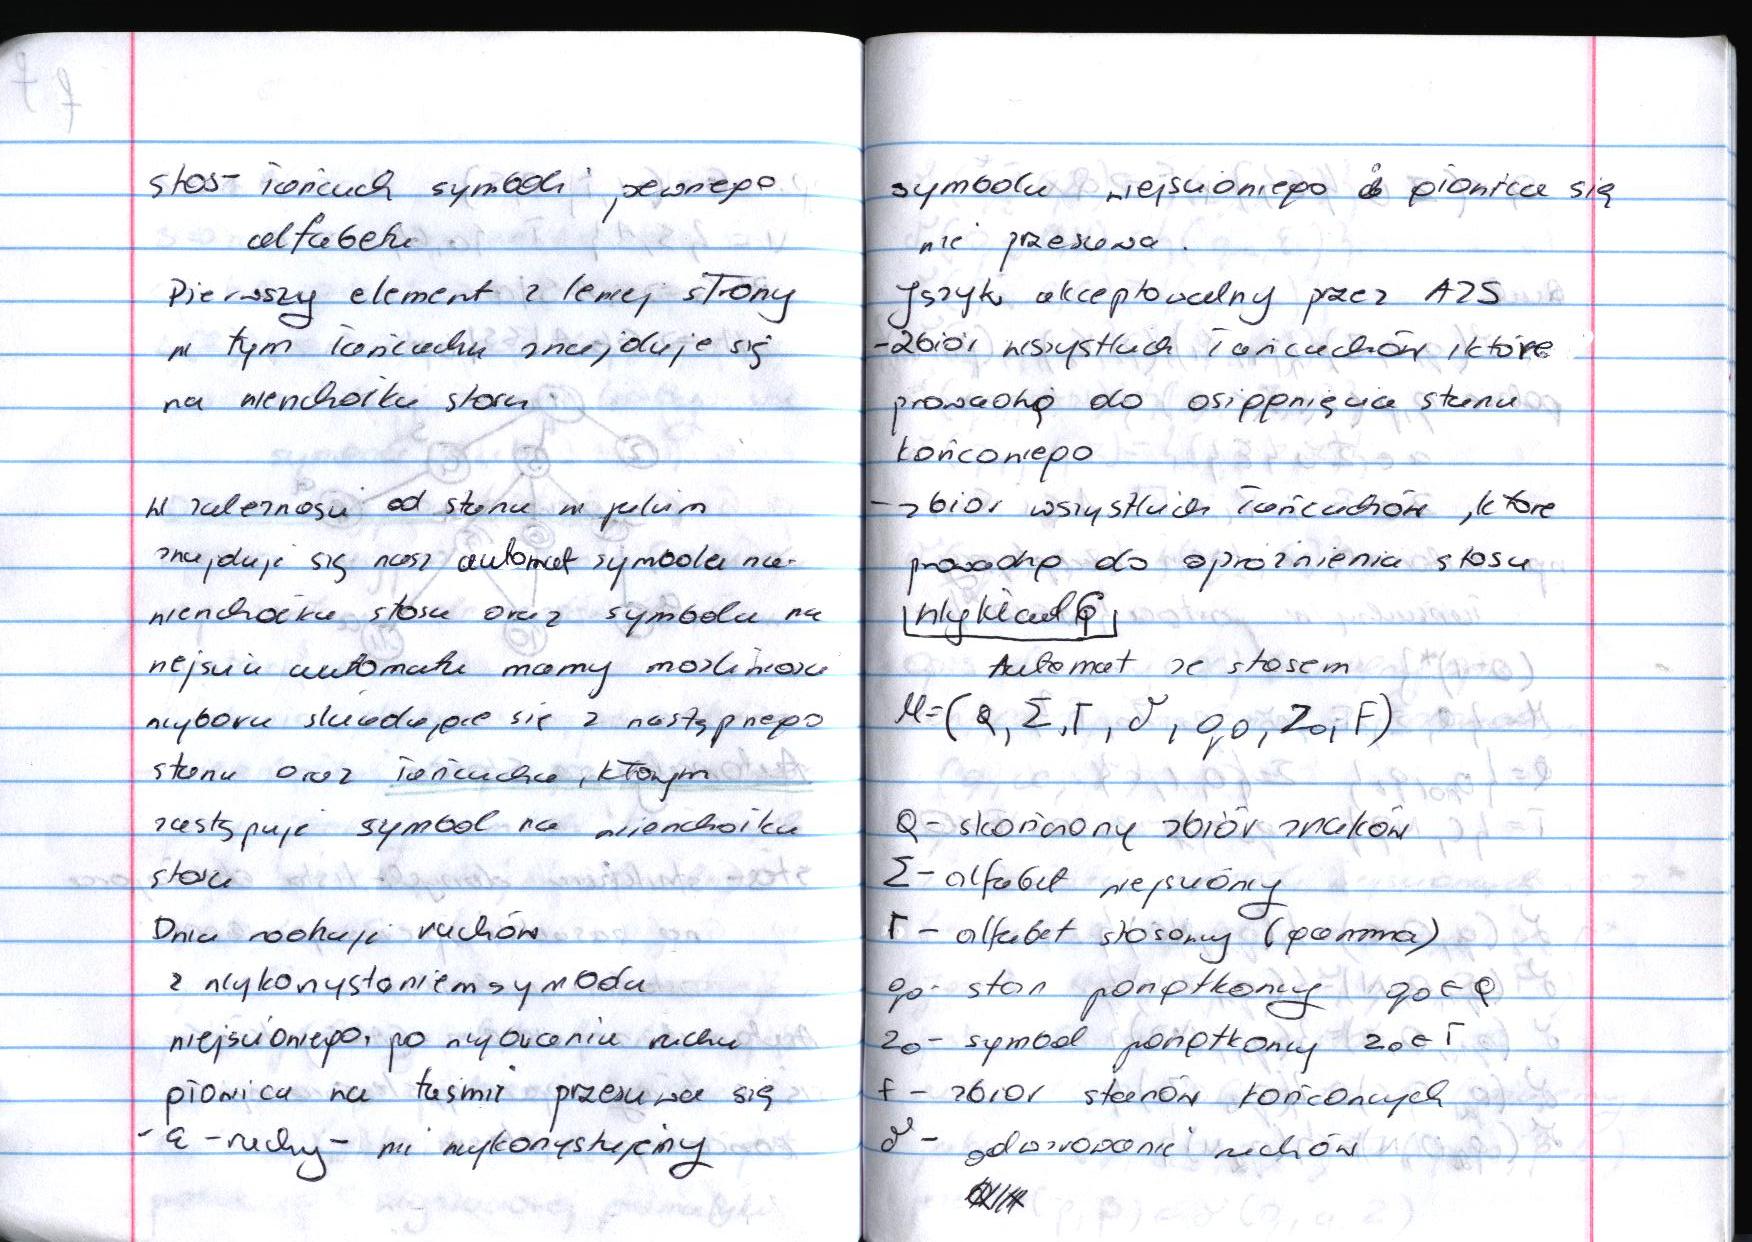 stos - łańcuch symboli pewnego
alfabetu
Pierwszy element z lewej strony
w tym łańcuchu znajduje się
na wierzchołku stosu
W zależności od stanu w jakim
znajduje się nasz automat symbolu na
wierzchołku stosu oraz symbolu na
wejściu automatu mamy możliwość
wyboru składające się z następnego
stanu oraz łańcucha, którym
zastępuje symbol na wierzchołku
stosu
Dwa rodzaje ruchów
z wykorzystaniem symbolu
wejściowego, po wykonaniu ruchu
głowica na taśmie przesuwa się
- ε - ruchy - nie wykorzystujemy
symbolu wejściowego i głowica się
nie przesuwa.
Język akceptowalny przez AZS
- zbiór wszystkich łańcuchów, które
prowadzą do osiągnięcia stanu
końcowego
- zbiór wszystkich łańcuchów, które
prowadzą do opróżnienia stosu
Automat ze stosem
M=(Q, Σ, Γ, δ, q0, Z0, F)
Q - skończony zbiór znaków
Σ - alfabet wejściowy
Γ - alfabet stosowy (gamma)
q0 - stan początkowy q0 ∈ Q
Z0 - symbol początkowy Z0 ∈ Γ
F - zbiór stanów końcowych
δ - odwzorowanie ruchów